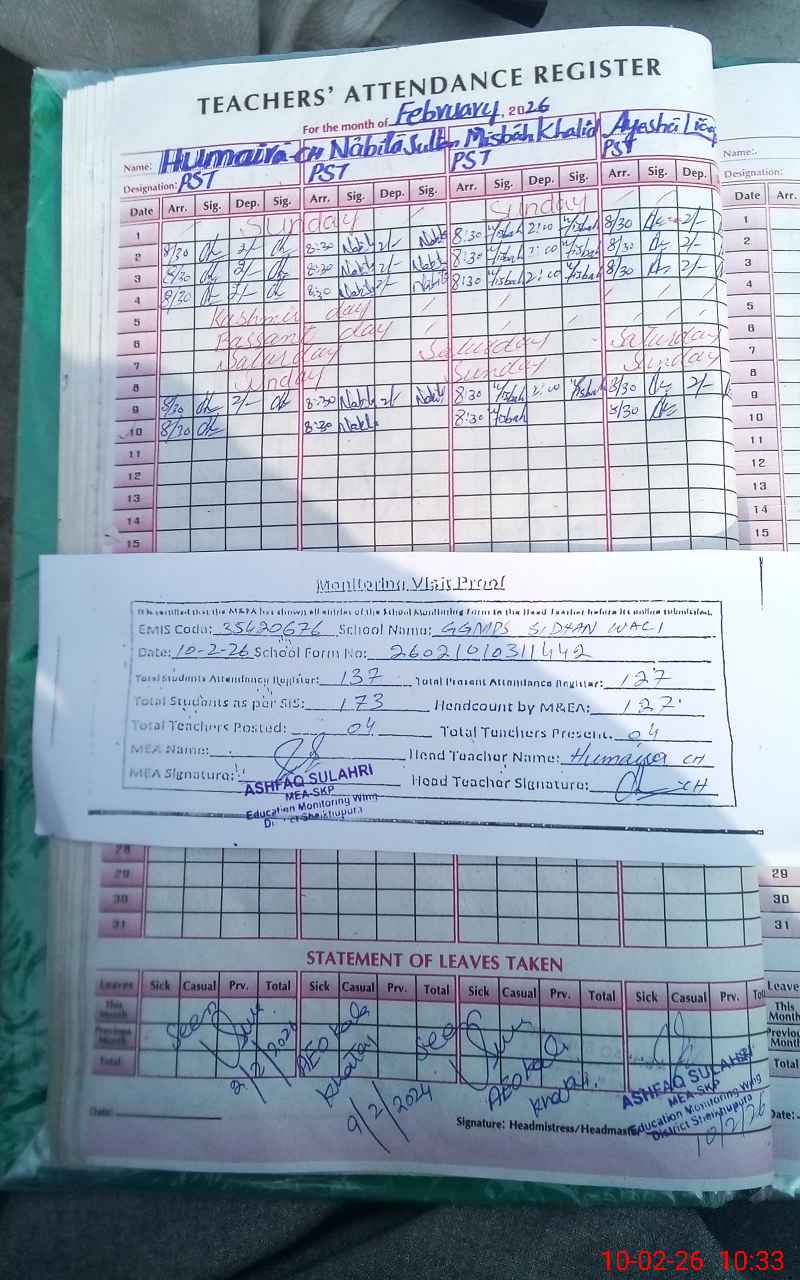 TEACHERS' ATTENDANCE REGISTER
For the month of February, 2026
Name: Humaira CH Nabila Sultan Misbah Khalid Ayesha Liaq Name:
Designation: PST PST PST PST Designation:
Date Arr. Sig. Dep. Sig. Arr. Sig. Dep. Sig. Arr. Sig. Dep. Sig. Arr. Sig. Dep. Date Arr.
1 Sunday Sunday 1
2 8/30 2/- 8:30 Nabila 2/- Nabila 8:30 Misbah 2:00 Misbah 8/30 2/- 2
3 8/30 2/- 8:30 Nabila 2/- Nabila 8:30 Misbah 2:00 Misbah 8/30 2/- 3
4 8/30 2/- 8:30 Nabila 2/- Nabila 8:30 Misbah 2:00 Misbah 8/30 2/- 4
5 Kashmir day 5
6 Bassant day 6
7 Saturday Saturday Saturday 7
8 Sunday Sunday Sunday 8
9 8/30 2/- 8:30 Nabila 2/- Nabila 8:30 Misbah 2:00 Misbah 8/30 2/- 9
10 8/30 8:30 Nabila 8:30 Misbah 8/30 10
11 11
12 12
13 13
14 14
15 15
Monitoring Visit Proof
It is certified that the M&EA has shown all entries of the School Monitoring Form to the Head Teacher before its online submission.
EMIS Code: 35420676 School Name: GGMPS SIDHAN WALI
Date: 10-2-26 School Form No: 26021010311442
Total Students Attendance Register: 137 Total Present Attendance Register: 127
Total Students as per SIS: 173 Headcount by M&EA: 127
Total Teachers Posted: 04 Total Teachers Present: 04
MEA Name: Head Teacher Name: Humaira CH
MEA Signature: Head Teacher Signature: CH
ASHFAQ SULAHRI
MEA-SKP
Education Monitoring Wing
District Sheikhupura
28
29 29
30 30
31 31
STATEMENT OF LEAVES TAKEN
Leaves Sick Casual Prv. Total Sick Casual Prv. Total Sick Casual Prv. Total Sick Casual Prv. Tot Leave
This Month This Month
Previous Month Previous Month
Total Total
Seen AEO Kala Khatai Seen AEO Kala Khatai
9/2/2026 9/2/2024
ASHFAQ SULAHRI
MEA-SKP
Education Monitoring Wing
District Sheikhupura
10/2/26
Date: Signature: Headmistress/Headmas Date:
10-02-26 10:33